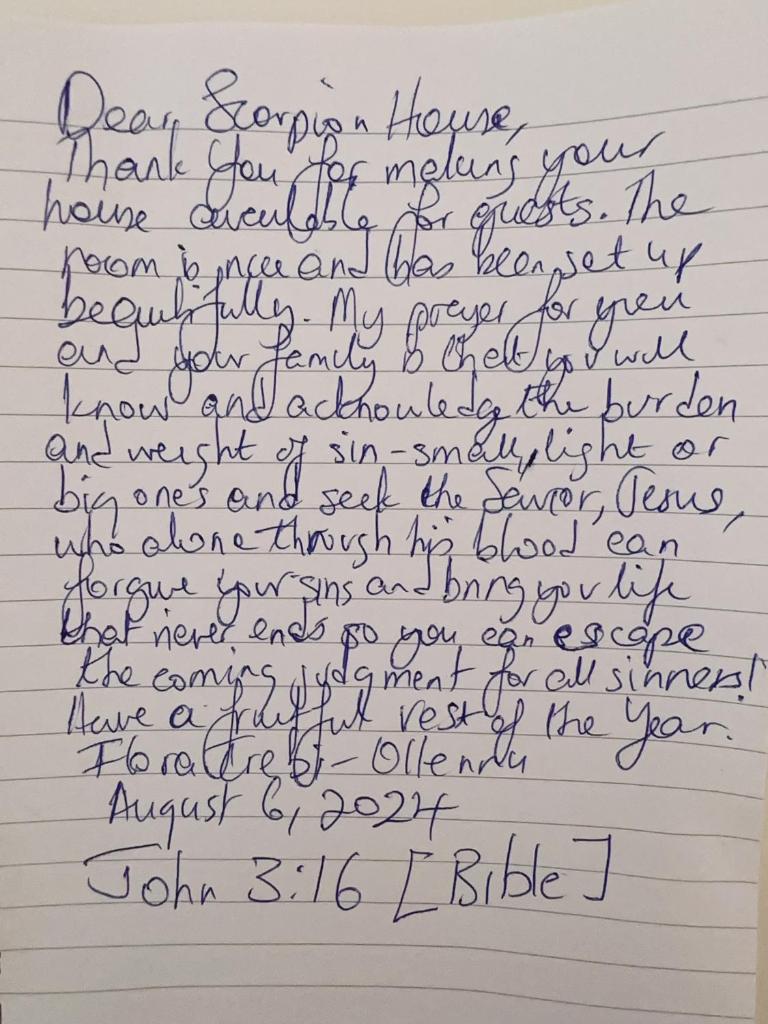 Dear, Scorpion House,
Thank You for making your
house available for guests. The
room is nice and has been set up
beautifully. My prayer for you
and your family is that you will
know and acknowledge the burden
and weight of sin-small, light or
big ones and seek the Savior, Jesus,
who alone through his blood can
forgive your sins and bring you life
that never ends so you can escape
the coming judgment for all sinners!
Have a fruitful rest of the Year.
Flora - Ollennu
August 6, 2024
John 3:16 [Bible]